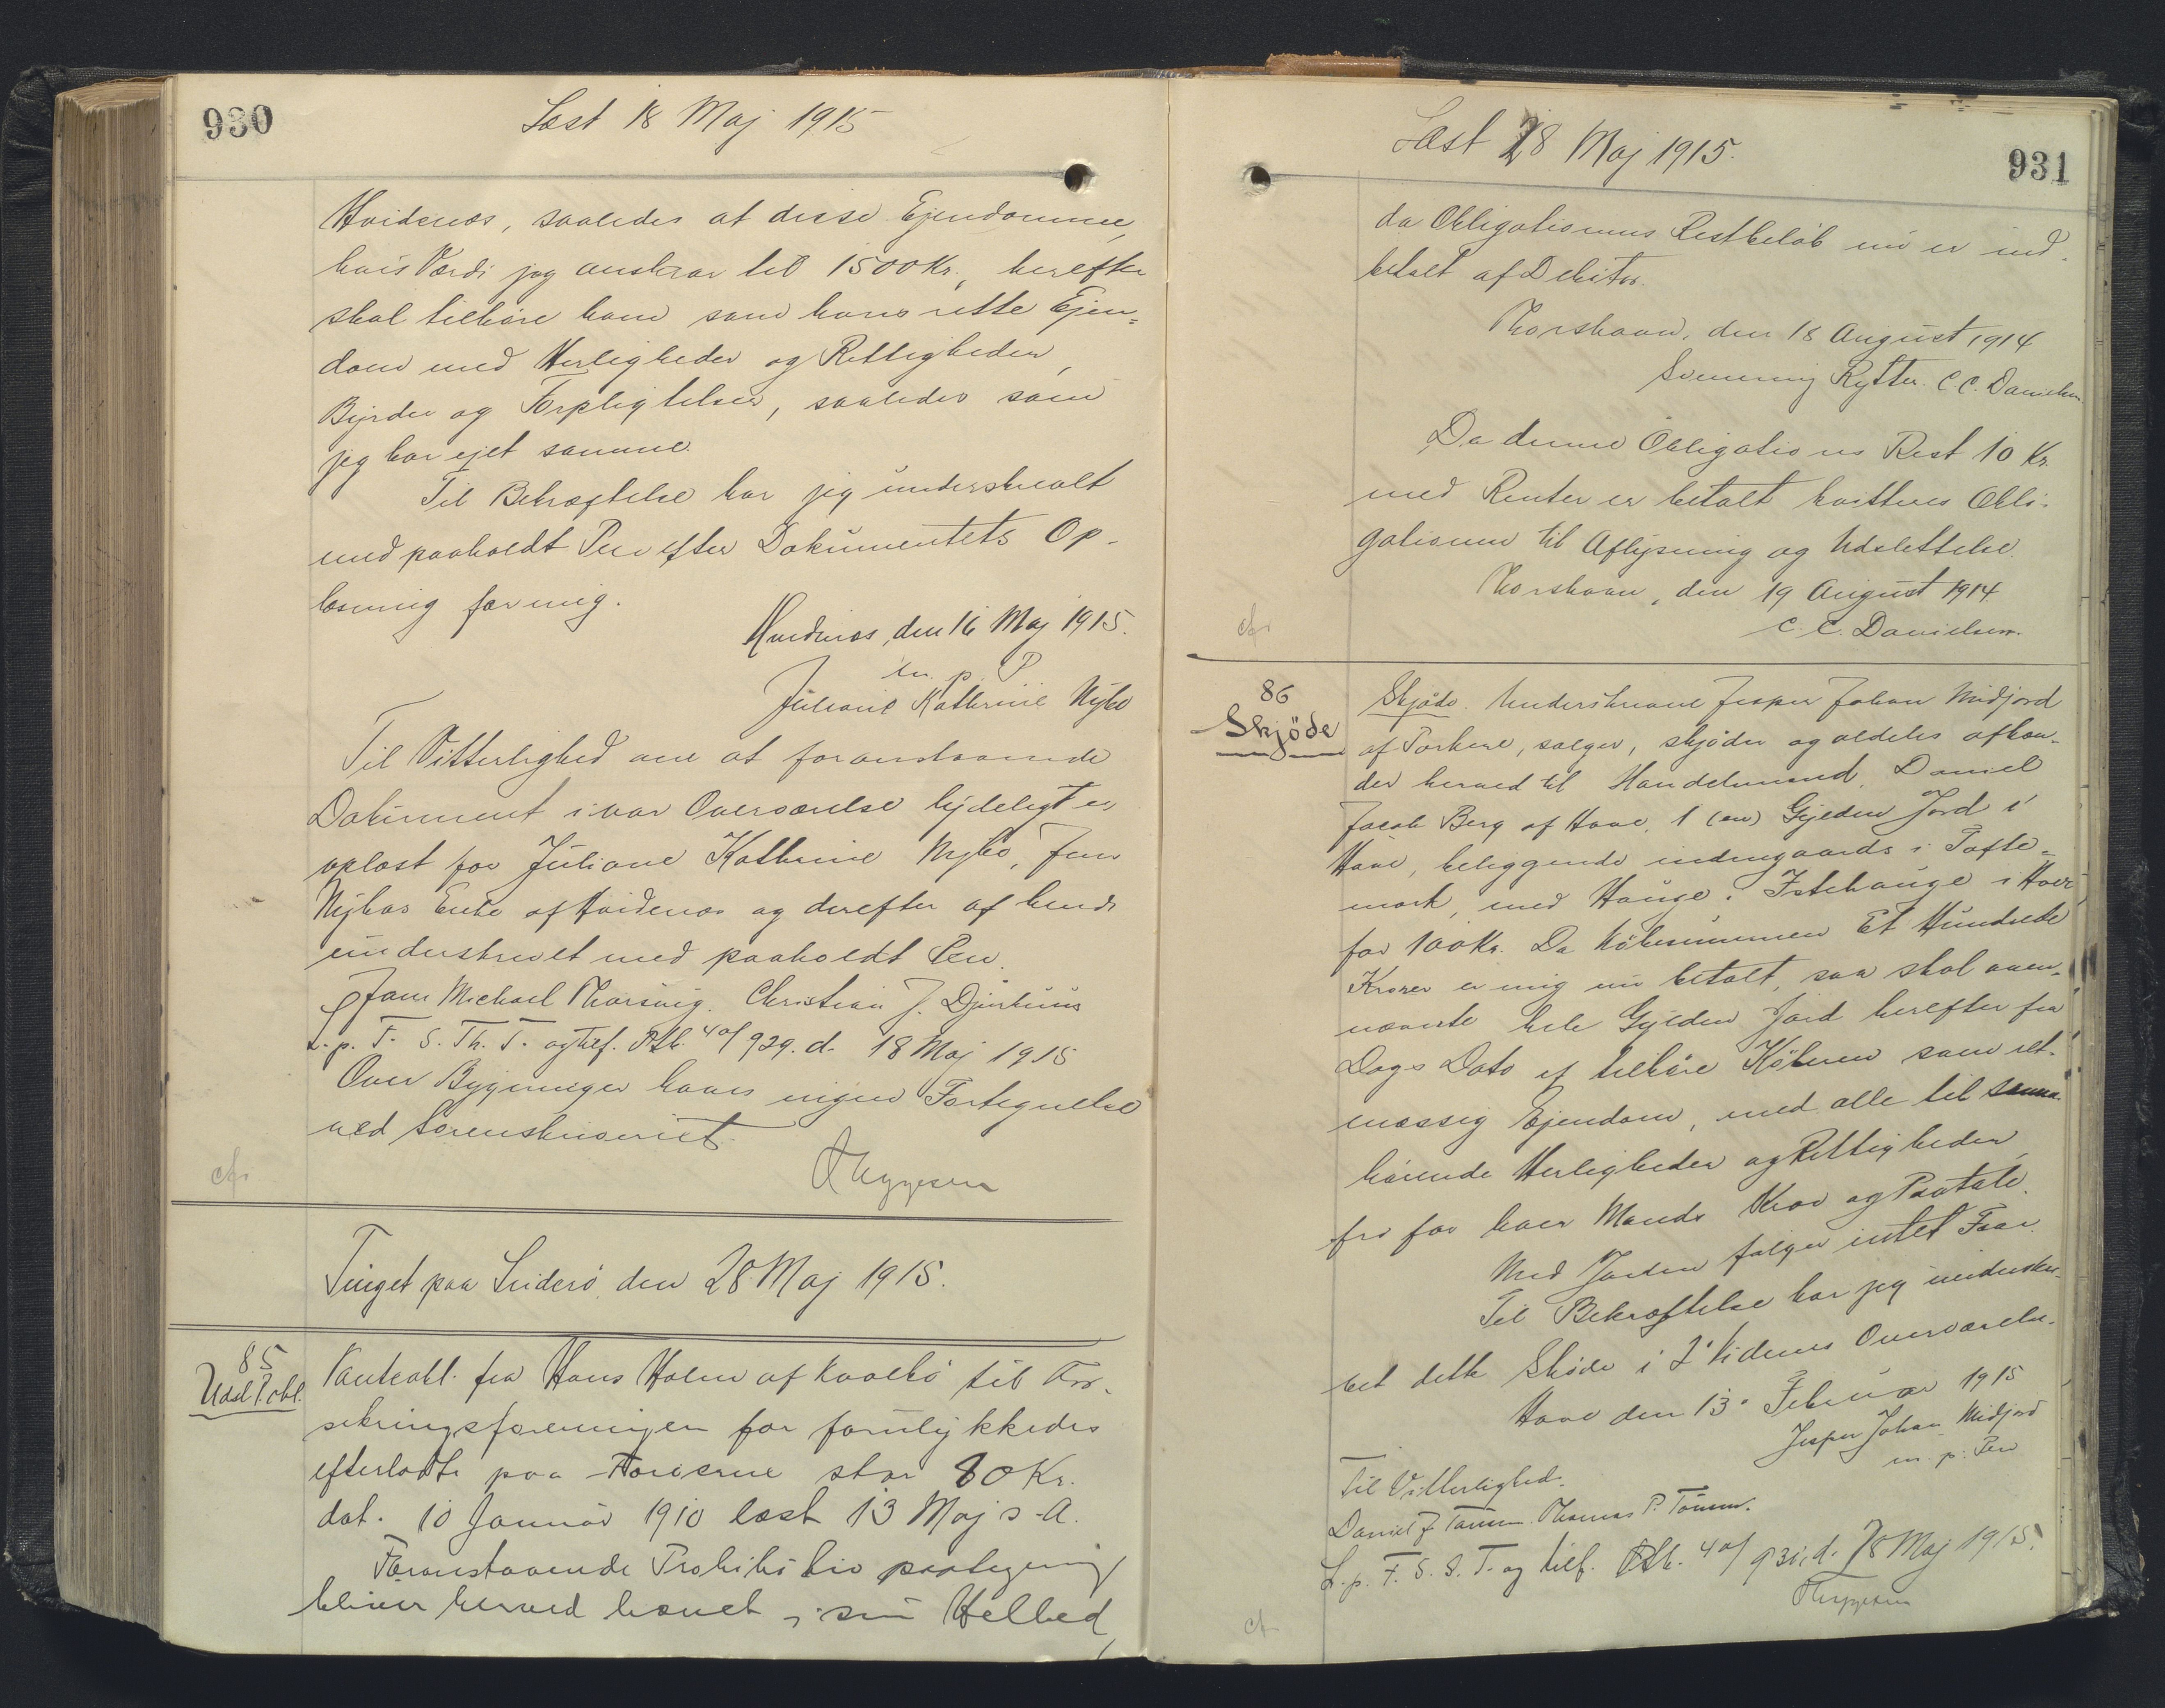 930
Læst 18 Maj 1915
Hvidenæs, saaledes at disse Ejendomme,
hvis Værdi jeg anslaar til 1500 Kr., herefter
skal tilhøre ham som hans rette Ejen=
dom med Herligheder og Rettigheder,
Byrder og Forpligtelser, saaledes som
jeg har ejet samme.
Til Bekræftelse har jeg underskrevet
med paaholdt Pen efter Dokumentets Op-
læsning for mig.
Hvidenæs, den 16 Maj 1915.
m. p. P
Juliane Kathrine Nybo
Til Vitterlighed om at foranstaaende
Dokument i vor Overværelse lydeligt er
oplæst for Juliane Kathrine Nybo, Jens
Nybos Enke af Hvidenæs og derefter af hende
underskrevet med paaholdt Pen.
Jens Michael Thorsvig. Christian J. Djurhuus
L. p. F. S. Th. T. og tilf. Ptb. 4 of 929. d. 18 Maj 1915
Over Bygninger haves ingen Fortegnelse
ved Sorenskriveriet.
Tinget paa Suderø, den 28 Maj 1915.
85
Udsl P.obl.
Panteobl. fra Hans Holm af Kvalbø til For-
sikringsforeningen for forulykkedes
efterladte paa Færøerne stor 80 Kr.
dat. 10 Januar 1910 læst 13 Maj s. A.
Foranstaaende Prohibitiv paategning
bliver herved hævet i sin Helhed,
Læst 28 Maj 1915.
931
da Obligationens Restbeløb nu er ind-
betalt af Debitor.
Thorshavn, den 18 August 1914
Svenning Rytter. C. C. Danielsen
Da denne Obligations Rest 10 Kr.
med Renter er betalt kvitteres Obli-
gationen til Aflysning og Udslettelse.
Thorshavn, den 19 August 1914
C. C. Danielsen.
86
Skjöde
Skjøde. Underskrevne Jesper Johan Midjord
af Porkere, sælger, skjøder og aldeles afhæn-
der herved til Handelsmand Daniel
Jacob Berg af Hove, 1 (en) Gylden Jord i
Hove, beliggende indengaards i Tofte-
mark, med Hauge i Hove
for 100 Kr. Da Købesummen Et Hundrede
Kroner er mig nu betalt, saa skal oven-
nævnte hele Gylden Jord herefter fra
Dags Dato af tilhøre Køberen som ret-
mæssig Ejendom, med alle til samme
hørende Herligheder og Rettigheder,
fri for hver Mands Krav og Paatale.
Med Jorden følger intet Faar.
Til Bekræftelse har jeg underskre-
vet dette Skøde i 2 Vidners Overværelse.
Hove den 13. Februar 1915
Jesper Johan Midjord
m. p. Pen
Til Vitterlighed.
Daniel J Thomas P.
L. p. F. S. S. T. og tilf. Ptb. 4 of 931. d. 28 Maj 1915.